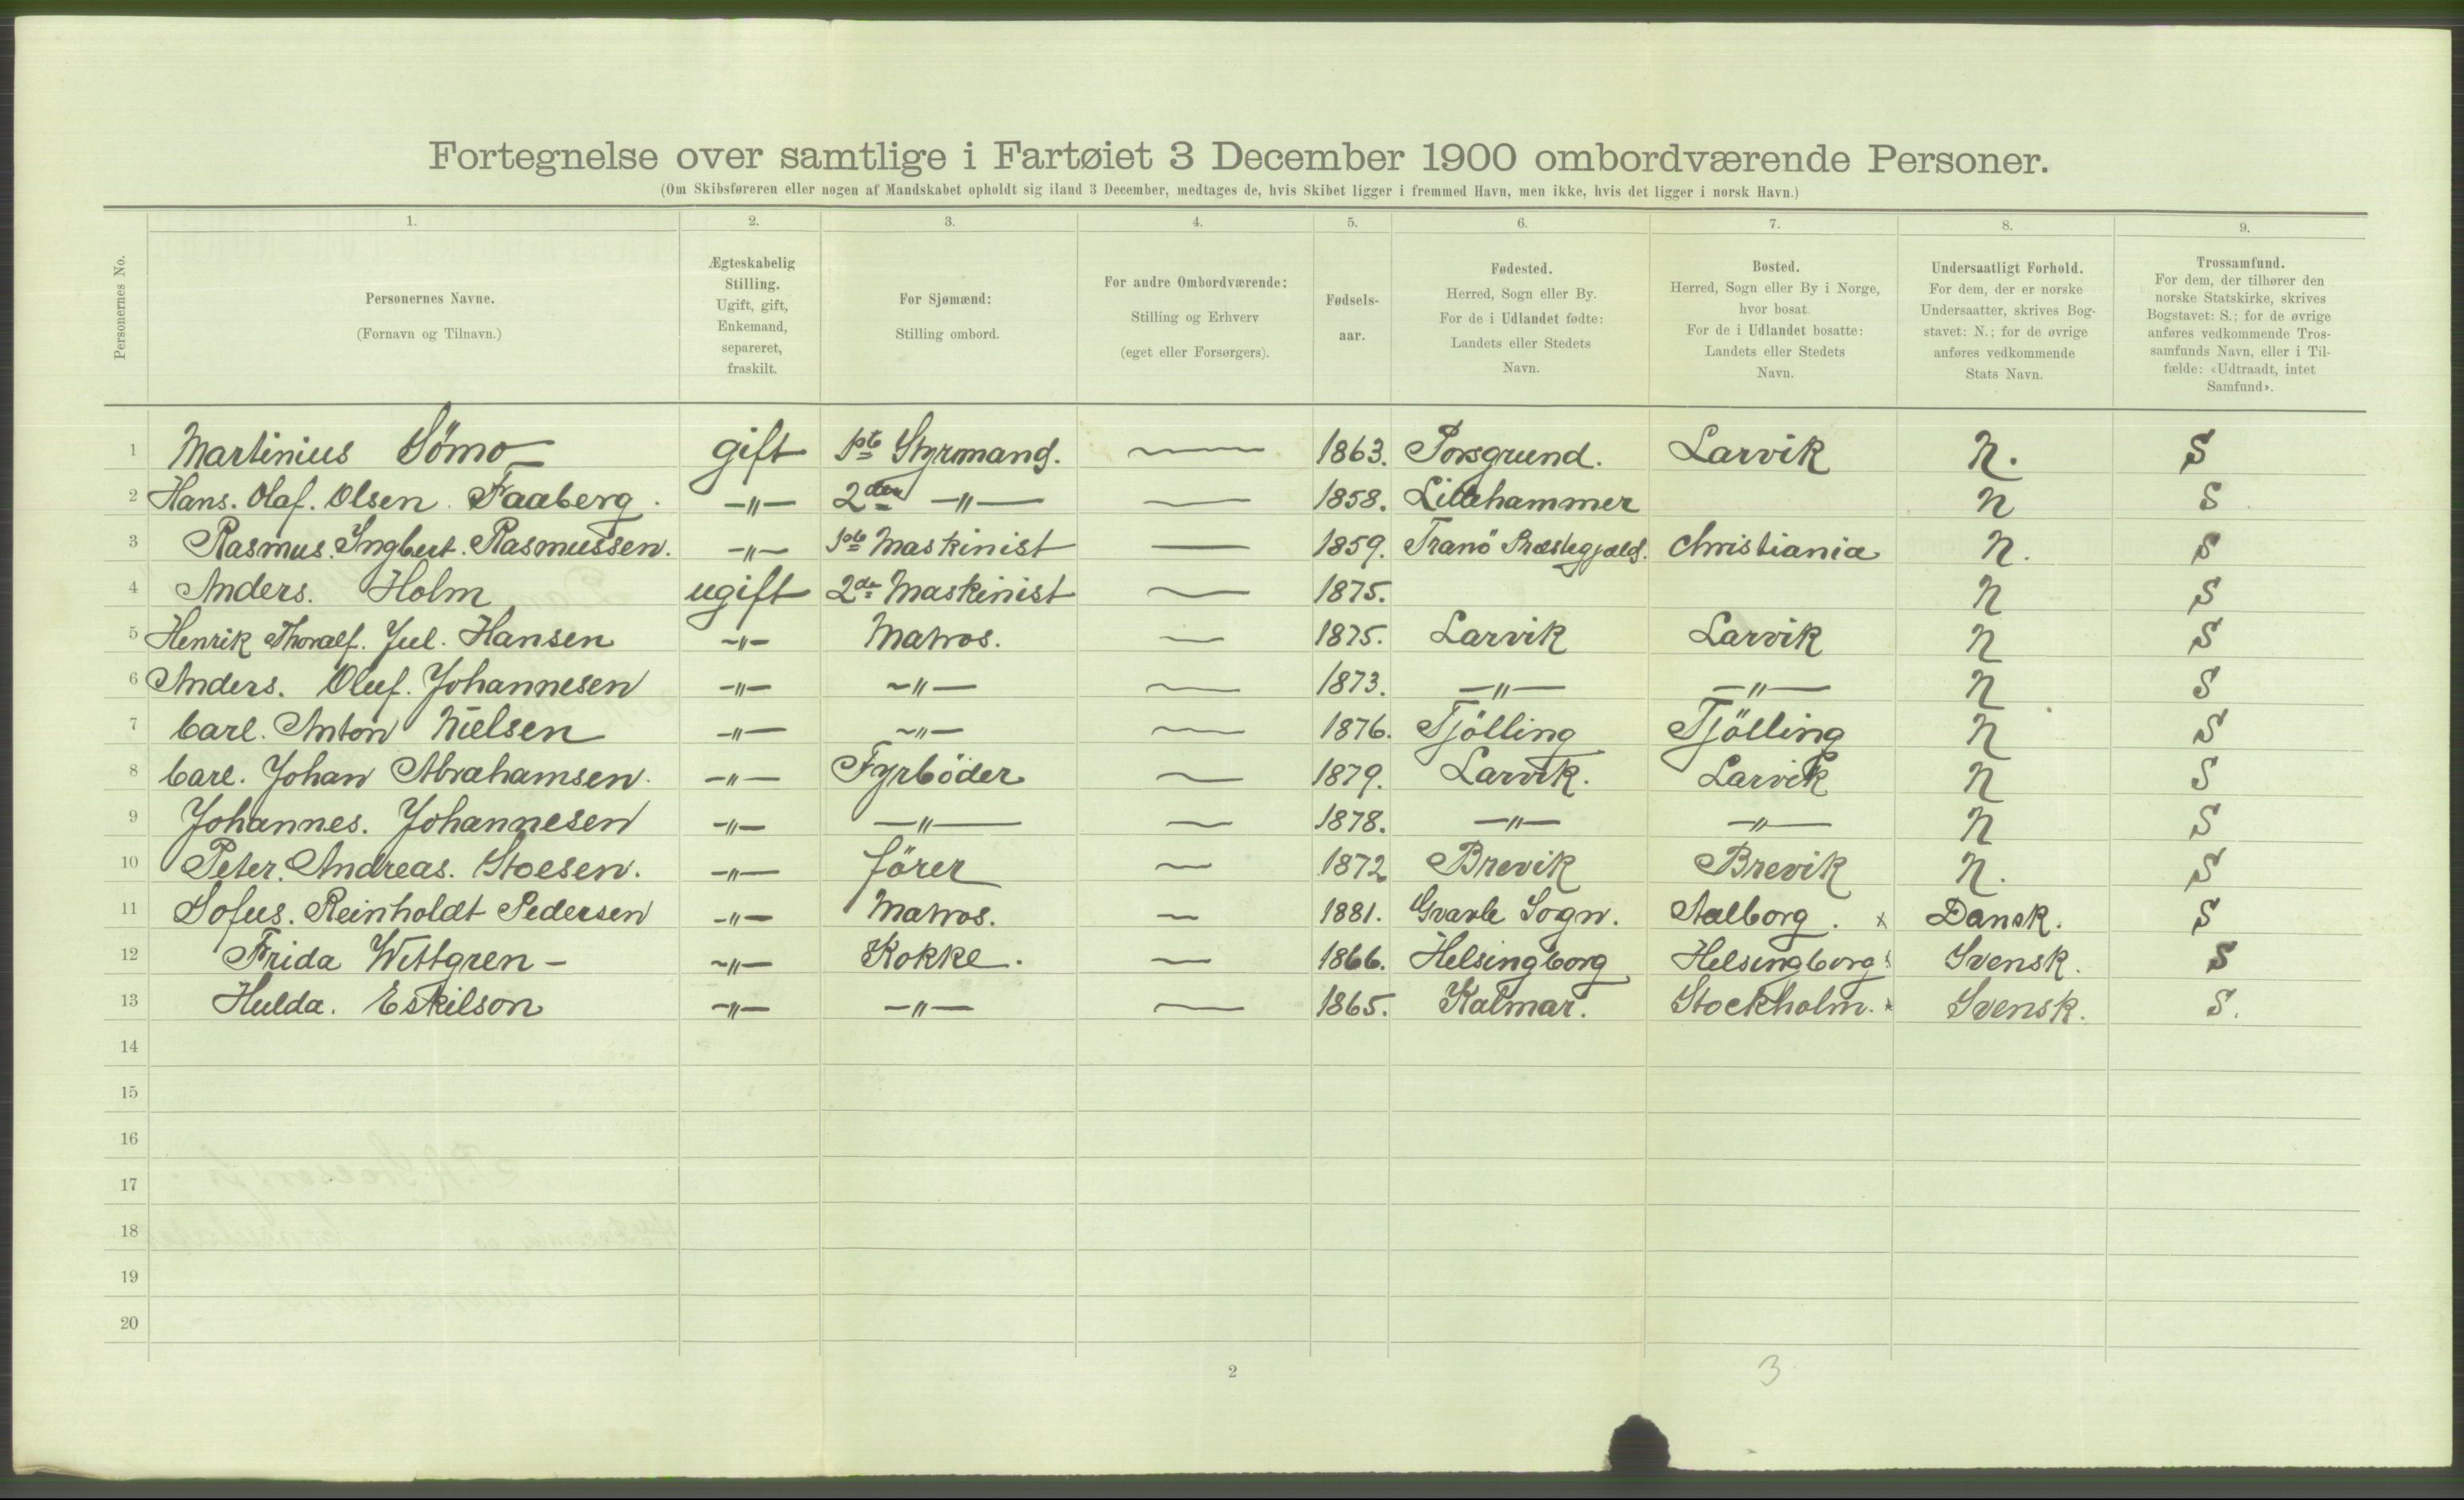 Fortegnelse over samtlige i Fartøiet 3 December 1900 ombordværende Personer.
(Om Skibsføreren eller nogen af Mandskabet opholdt sig iland 3 December, medtages de, hvis Skibet ligger i fremmed Havn, men ikke, hvis det ligger i norsk Havn.)
1. 2. 3. 4. 5. 6. 7. 8. 9.
Personernes No.
Personernes Navne.
(Fornavn og Tilnavn.)
Ægteskabelig
Stilling.
Ugift, gift,
Enkemand,
separeret,
fraskilt.
For Sjømænd:
Stilling ombord.
For andre Ombordværende:
Stilling og Erhverv
(eget eller Forsørgers).
Fødsels-
aar.
Fødested.
Herred, Sogn eller By.
For de i Udlandet fødte:
Landets eller Stedets
Navn.
Bosted.
Herred, Sogn eller By i Norge,
hvor bosat.
For de i Udlandet bosatte:
Landets eller Stedets
Navn.
Undersaatligt Forhold.
For dem, der er norske
Undersaatter, skrives Bog-
stavet: N.; for de øvrige
anføres vedkommende
Stats Navn.
Trossamfund.
For dem, der tilhører den
norske Statskirke, skrives
Bogstavet: S.; for de øvrige
anføres vedkommende Tros-
samfunds Navn, eller i Til-
fælde: «Udtraadt, intet
Samfund».
1 Martinius Sömo gift 1ste Styrmand. — 1863. Porsgrund. Larvik N. S
2 Hans. Olaf. Olsen. Faaberg. —"— 2den —"— — 1858. Lillehammer N S
3 Rasmus. Ingbert. Rasmussen. —"— 1ste Maskinist — 1859. Tranö Præstegjæld. Christiania N. S
4 Anders. Holm ugift 2de Maskinist — 1875. N S
5 Henrik Thoralf. Jul. Hansen —"— Matros. — 1875. Larvik Larvik N S
6 Anders. Oluf. Johannesen —"— —"— — 1873. —"— —"— N S
7 Carl. Anton Nielsen —"— —"— — 1876. Tjölling Tjölling N S
8 Carl. Johan Abrahamsen. —"— Fyrböder — 1879. Larvik. Larvik N S
9 Johannes. Johannesen —"— —"— — 1878. —"— —"— N S
10 Peter. Andreas. Stoesen. —"— förer — 1872 Brevik Brevik N. S
11 Sofus. Reinholdt Pedersen —"— Matros. — 1881. Sogn. Aalborg. x Dansk. S
12 Frida Wittgren — —"— Kokke. — 1866. Helsingborg Helsingborg Svensk. S
13 Hulda. Eskilson —"— —"— — 1865. Kalmar. Stockholm. x Svensk. S.
14
15
16
17
18
19
20
2
3